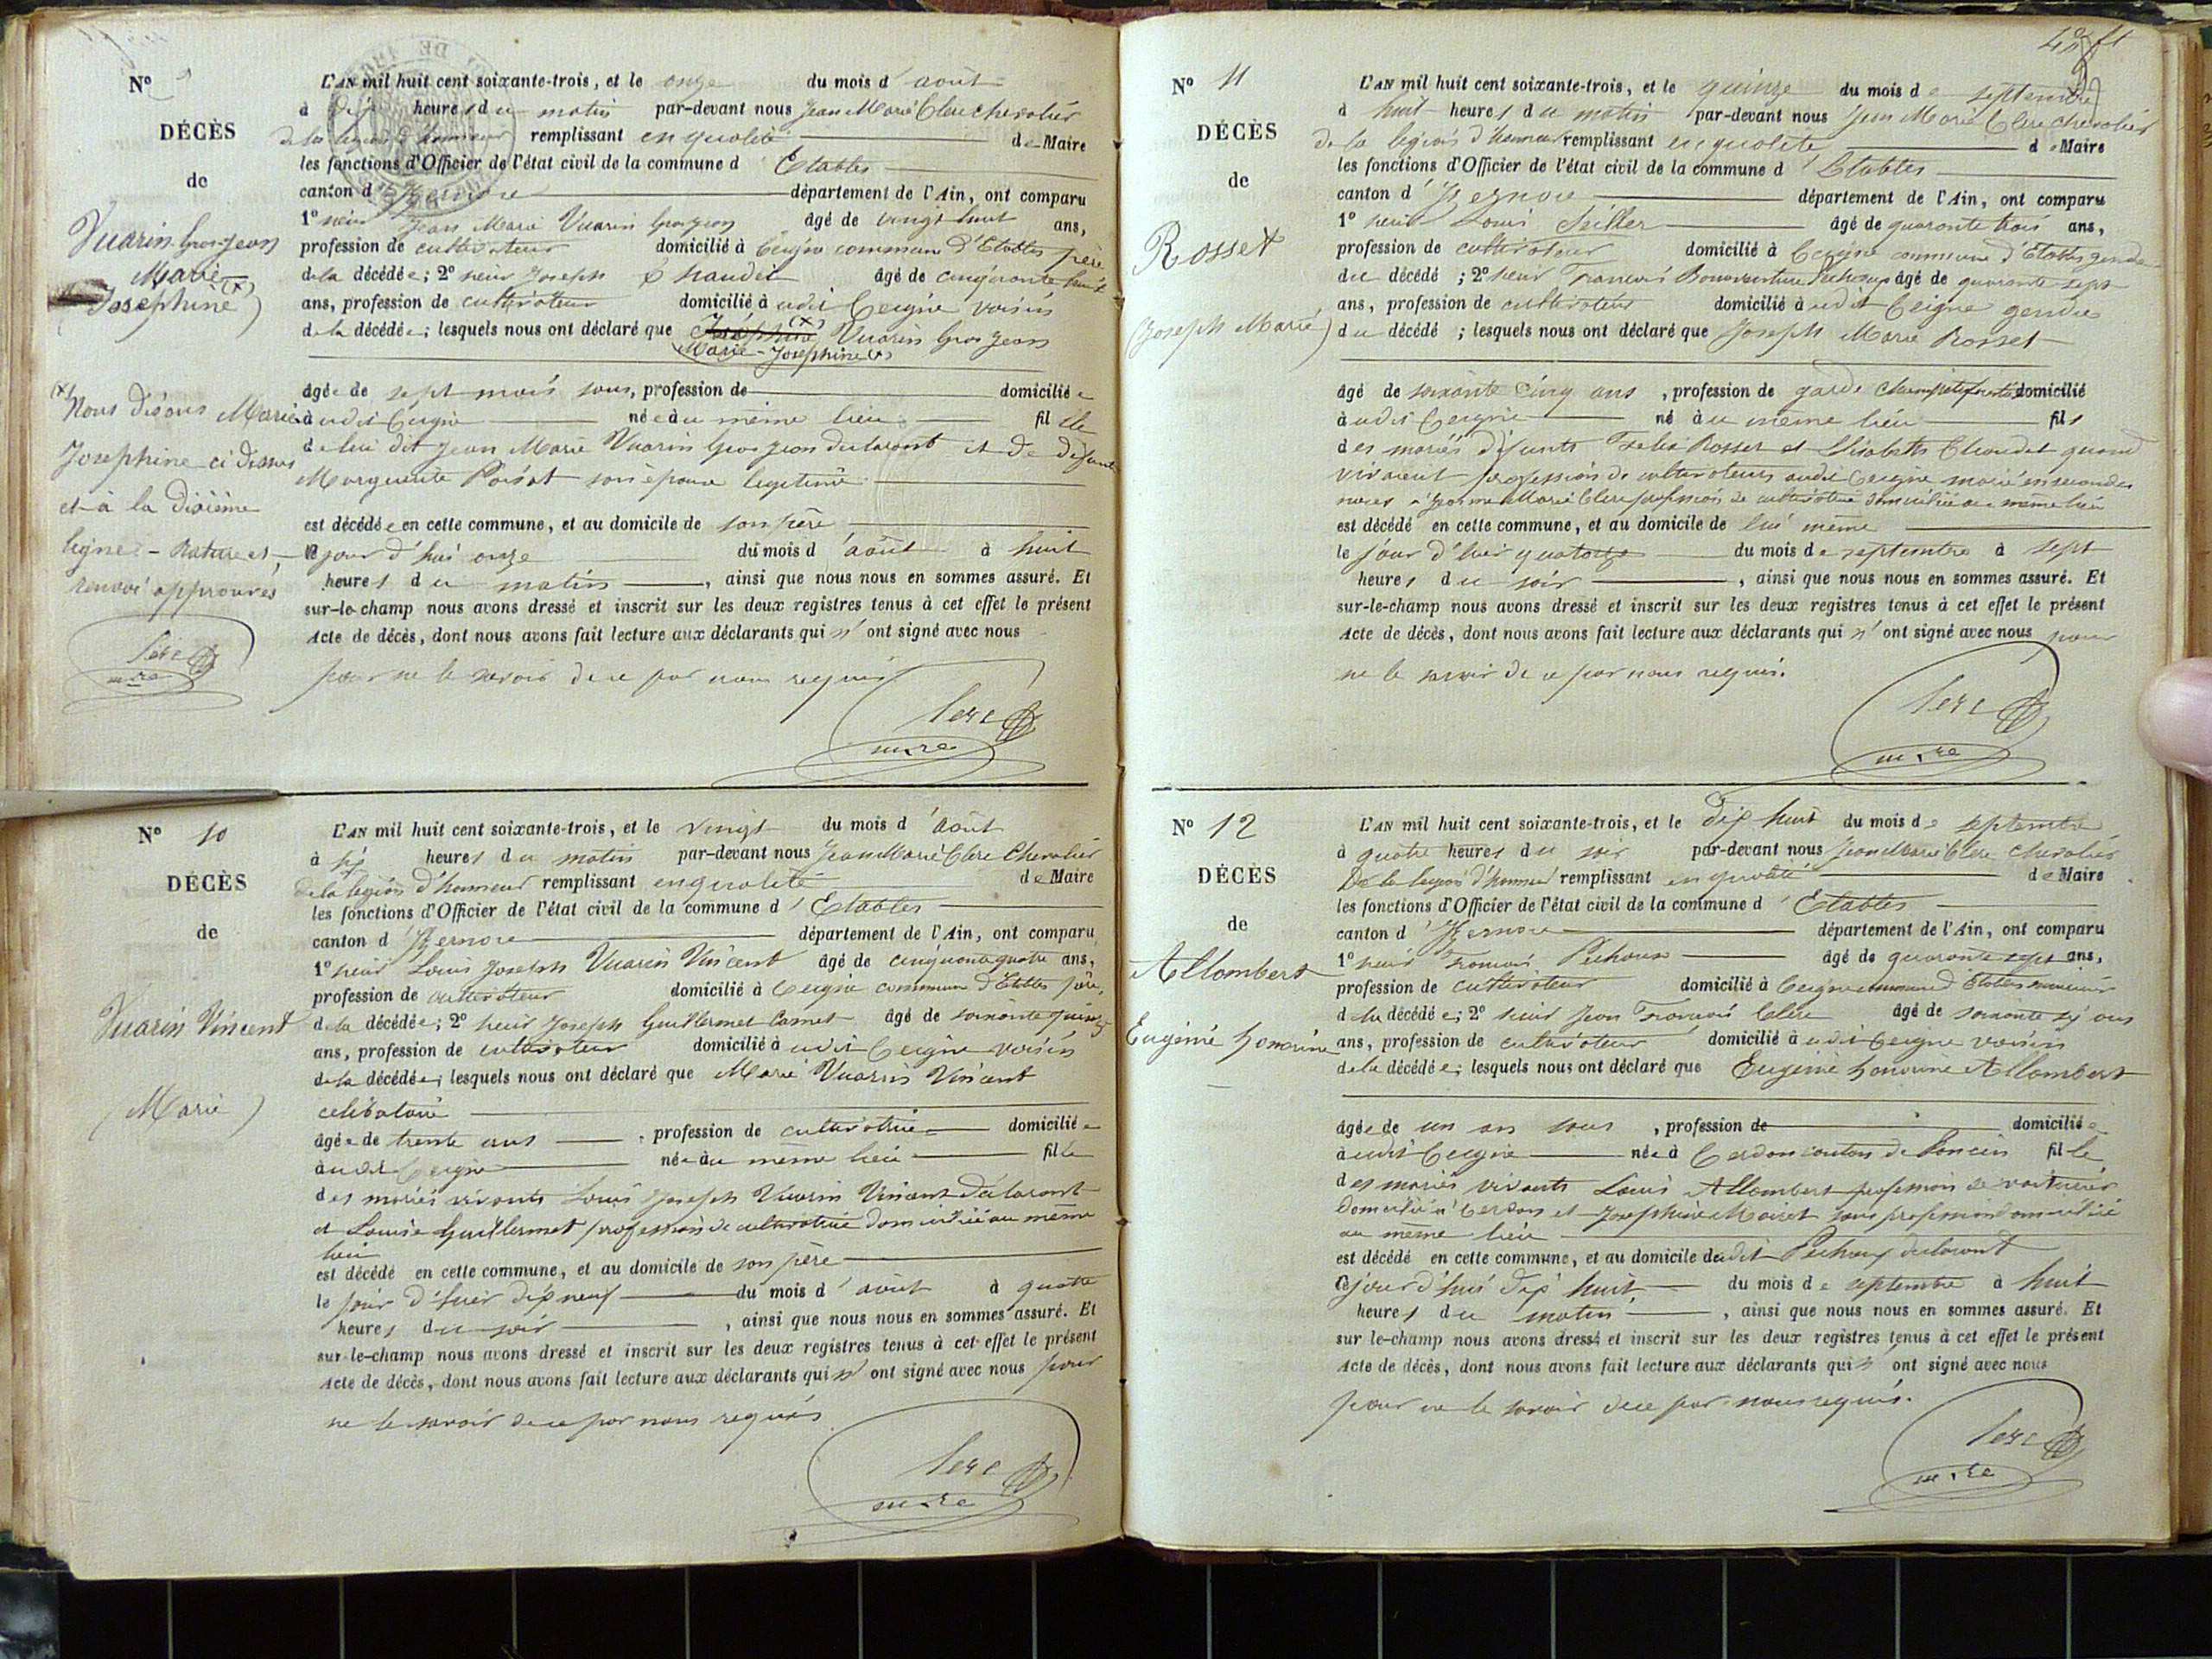 Nº
DÉCÈS
de
Vuarin Gros-Jean
Marie (x)
Josephine
(x)
Nous disons Marie
Josephine ci dessus
et à la dixième
ligne - Rature et
renvoi approuvés
Clerc
mre
L'AN mil huit cent soixante-trois, et le onze du mois d'août
à dix heures du matin par-devant nous Jean Marie Clerc chevalier
de la legion d'honneur remplissant en qualité de Maire
les fonctions d'Officier de l'état civil de la commune d'Etables
canton d'Izernore département de l'Ain, ont comparu
1º sieur Jean Marie Vuarin Gros jean âgé de vingt huit ans,
profession de cultivateur domicilié à Ceigne commune d'Etables père
de la décédée; 2º sieur Joseph Chaudet âgé de cinquante huit
ans, profession de cultivateur domicilié à udit Ceigne voisin
de la décédée; lesquels nous ont déclaré que Joséphine (x) Vuarin Gros Jean
Marie-Josephine (x)
âgée de sept mois sous, profession de domiciliée
à udit Ceigne née au même lieu fille
de lui dit Jean Marie Vuarin Gros Jean declarant et de défunte
Marguerite Poisat son épouse legitime
est décédée en cette commune, et au domicile de son père
ce jour d'hui onze du mois d'août à huit
heures du matin, ainsi que nous nous en sommes assuré. Et
sur-le-champ nous avons dressé et inscrit sur les deux registres tenus à cet effet le présent
Acte de décès, dont nous avons fait lecture aux déclarants qui n'ont signé avec nous
pour ne le savoir de ce par nous requis
Clerc
mre
Nº 10
DÉCÈS
de
Vuarin Vincent
(Marie)
L'AN mil huit cent soixante-trois, et le vingt du mois d'août
à six heures du matin par-devant nous Jean Marie Clerc Chevalier
de la legion d'honneur remplissant en qualité de Maire
les fonctions d'Officier de l'état civil de la commune d'Etables
canton d'Izernore département de l'Ain, ont comparu
1º sieur Louis Joseph Vuarin Vincent âgé de cinquante quatre ans,
profession de cultivateur domicilié à Ceigne commune d'Etables père,
de la décédée; 2º sieur Joseph Guillermet Carnet âgé de soixante quinze
ans, profession de cultivateur domicilié à udit Ceigne voisin
de la décédée; lesquels nous ont déclaré que Marie Vuarin Vincent
celibataire
âgée de trente ans, profession de cultivatrice domiciliée
à udit Ceigne née au même lieu fille
des mariés vivants Louis Joseph Vuarin Vincent declarant
et Louise Guillermet profession de cultivatrice domiciliée au même
lieu
est décédé en cette commune, et au domicile de son père
le jour d'hier dix neuf du mois d'août à quatre
heures du soir, ainsi que nous nous en sommes assuré. Et
sur-le-champ nous avons dressé et inscrit sur les deux registres tenus à cet effet le présent
Acte de décès, dont nous avons fait lecture aux déclarants qui n'ont signé avec nous pour
ne le savoir de ce par nous requis
Clerc
mre
Nº 11
DÉCÈS
de
Rosset
(Joseph Marie)
L'AN mil huit cent soixante-trois, et le quinze du mois de septembre
à huit heures du matin par-devant nous Jean Marie Clerc chevalier
de la legion d'honneur remplissant en qualité de Maire
les fonctions d'Officier de l'état civil de la commune d'Etables
canton d'Izernore département de l'Ain, ont comparu
1º sieur Louis âgé de quarante trois ans,
profession de cultivateur domicilié à Ceigne commune d'Etables gendre
du décédé; 2º sieur Francois Bonaventure Pichoux âgé de quarante sept
ans, profession de cultivateur domicilié à udit Ceigne gendre
du décédé; lesquels nous ont déclaré que Joseph Marie Rosset
âgé de soixante cinq ans, profession de garde champêtre domicilié
à udit Ceigne né au même lieu fils
des mariés défunts Rosset et Elisabeth Chaudet quand
vivaient profession de cultivateurs audit Ceigne marié en secondes
noces à Marie Clerc profession de cultivatrice domiciliée au même lieu
est décédé en cette commune, et au domicile de lui même
le jour d'hier quatorze du mois de septembre à sept
heures du soir, ainsi que nous nous en sommes assuré. Et
sur-le-champ nous avons dressé et inscrit sur les deux registres tenus à cet effet le présent
Acte de décès, dont nous avons fait lecture aux déclarants qui n'ont signé avec nous pour
ne le savoir de ce par nous requis.
Clerc
mre
Nº 12
DÉCÈS
de
Allombert
Eugénie honorine
L'AN mil huit cent soixante-trois, et le dix huit du mois de septembre
à quatre heures du soir par-devant nous Jean Marie Clerc chevalier
de la legion d'honneur remplissant en qualité de Maire
les fonctions d'Officier de l'état civil de la commune d'Etables
canton d'Izernore département de l'Ain, ont comparu
1º sieur Francois Pichoux âgé de quarante sept ans,
profession de cultivateur domicilié à Ceigne commune d'Etables
de la décédée; 2º sieur Jean Francois Clerc âgé de soixante six ans
ans, profession de cultivateur domicilié à udit Ceigne voisin
de la décédée; lesquels nous ont déclaré que Eugénie honorine Allombert
âgée de un an sous, profession de domiciliée
à udit Ceigne née à Cerdon canton de Poncin fille
des mariés vivants Louis Allombert profession de voiturier
domicilié à Cerdon et Josephine sans profession domiciliée
au même lieu
est décédé en cette commune, et au domicile dudit Pichoux declarant
cejourd'hui dix huit du mois de septembre à huit
heures du matin, ainsi que nous nous en sommes assuré. Et
sur le-champ nous avons dressé et inscrit sur les deux registres tenus à cet effet le présent
Acte de décès, dont nous avons fait lecture aux déclarants qui n'ont signé avec nous
pour ne le savoir de ce par nous requis.
Clerc
mre